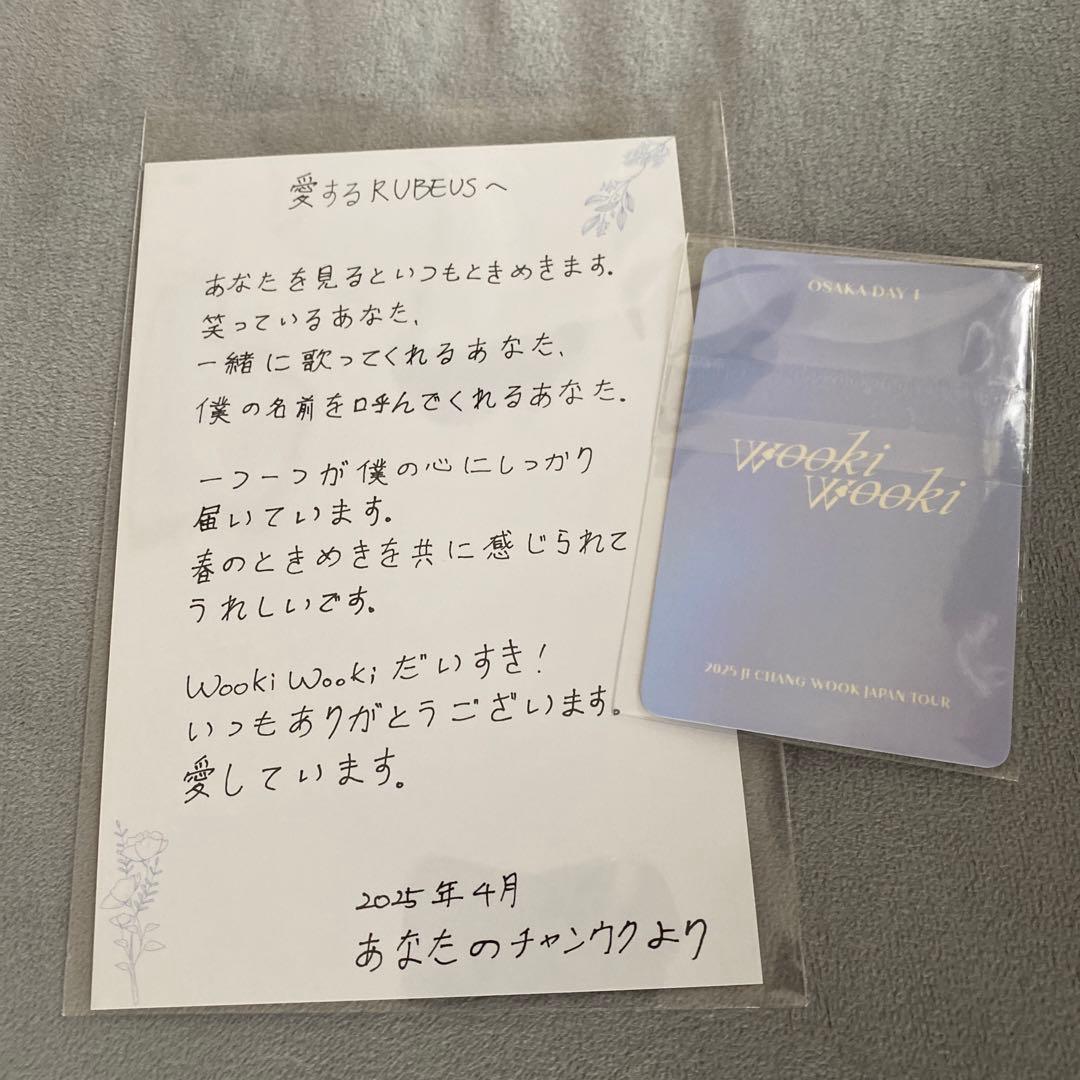 愛するRUBEUSへ
あなたを見るといつもときめきます。
笑っているあなた、
一緒に歌ってくれるあなた、
僕の名前を呼んでくれるあなた。
一つ一つが僕の心にしっかり
届いています。
春のときめきを共に感じられて
うれしいです。
Wooki Wooki だいすき!
いつもありがとうございます。
愛しています。
2025年4月
あなたのチャンウクより
OSAKA DAY 1
wooki
wooki
2025 JI CHANG WOOK JAPAN TOUR